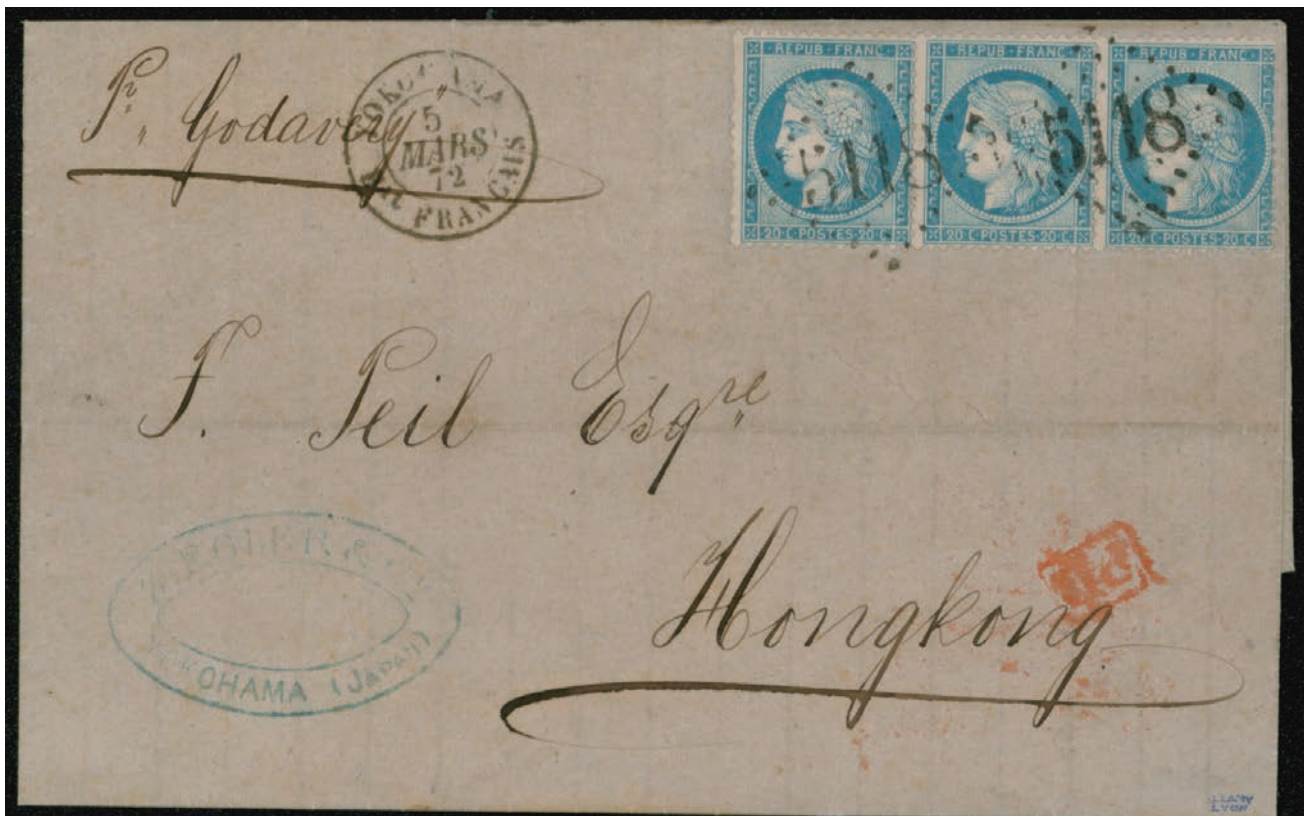 Pr. Godavery
YOKOHAMA
5
MARS
72
Bau FRANCAIS
REPUB·FRANC·
20·C·POSTES·20·C
REPUB·FRANC·
20·C·POSTES·20·C
REPUB·FRANC·
20·C·POSTES·20·C
5118
5118
F. Peil Esqre
Hongkong
PD
YOKOHAMA (JAPAN)
LYON